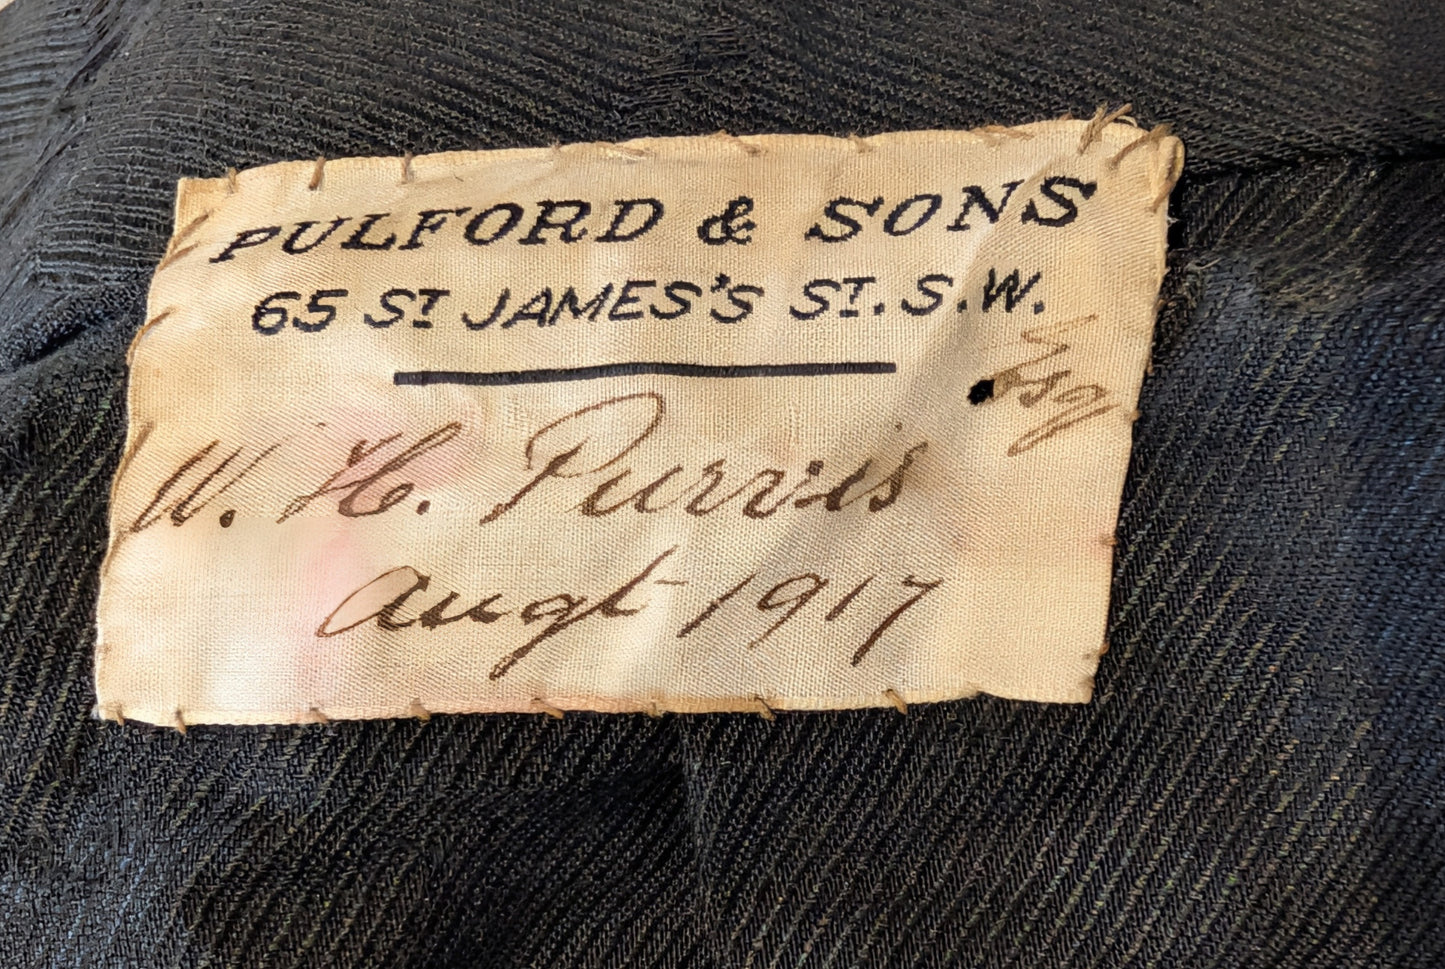 PULFORD & SONS
65 ST JAMES'S ST. S.W.
W. H. Purvis Esq
Augt 1917